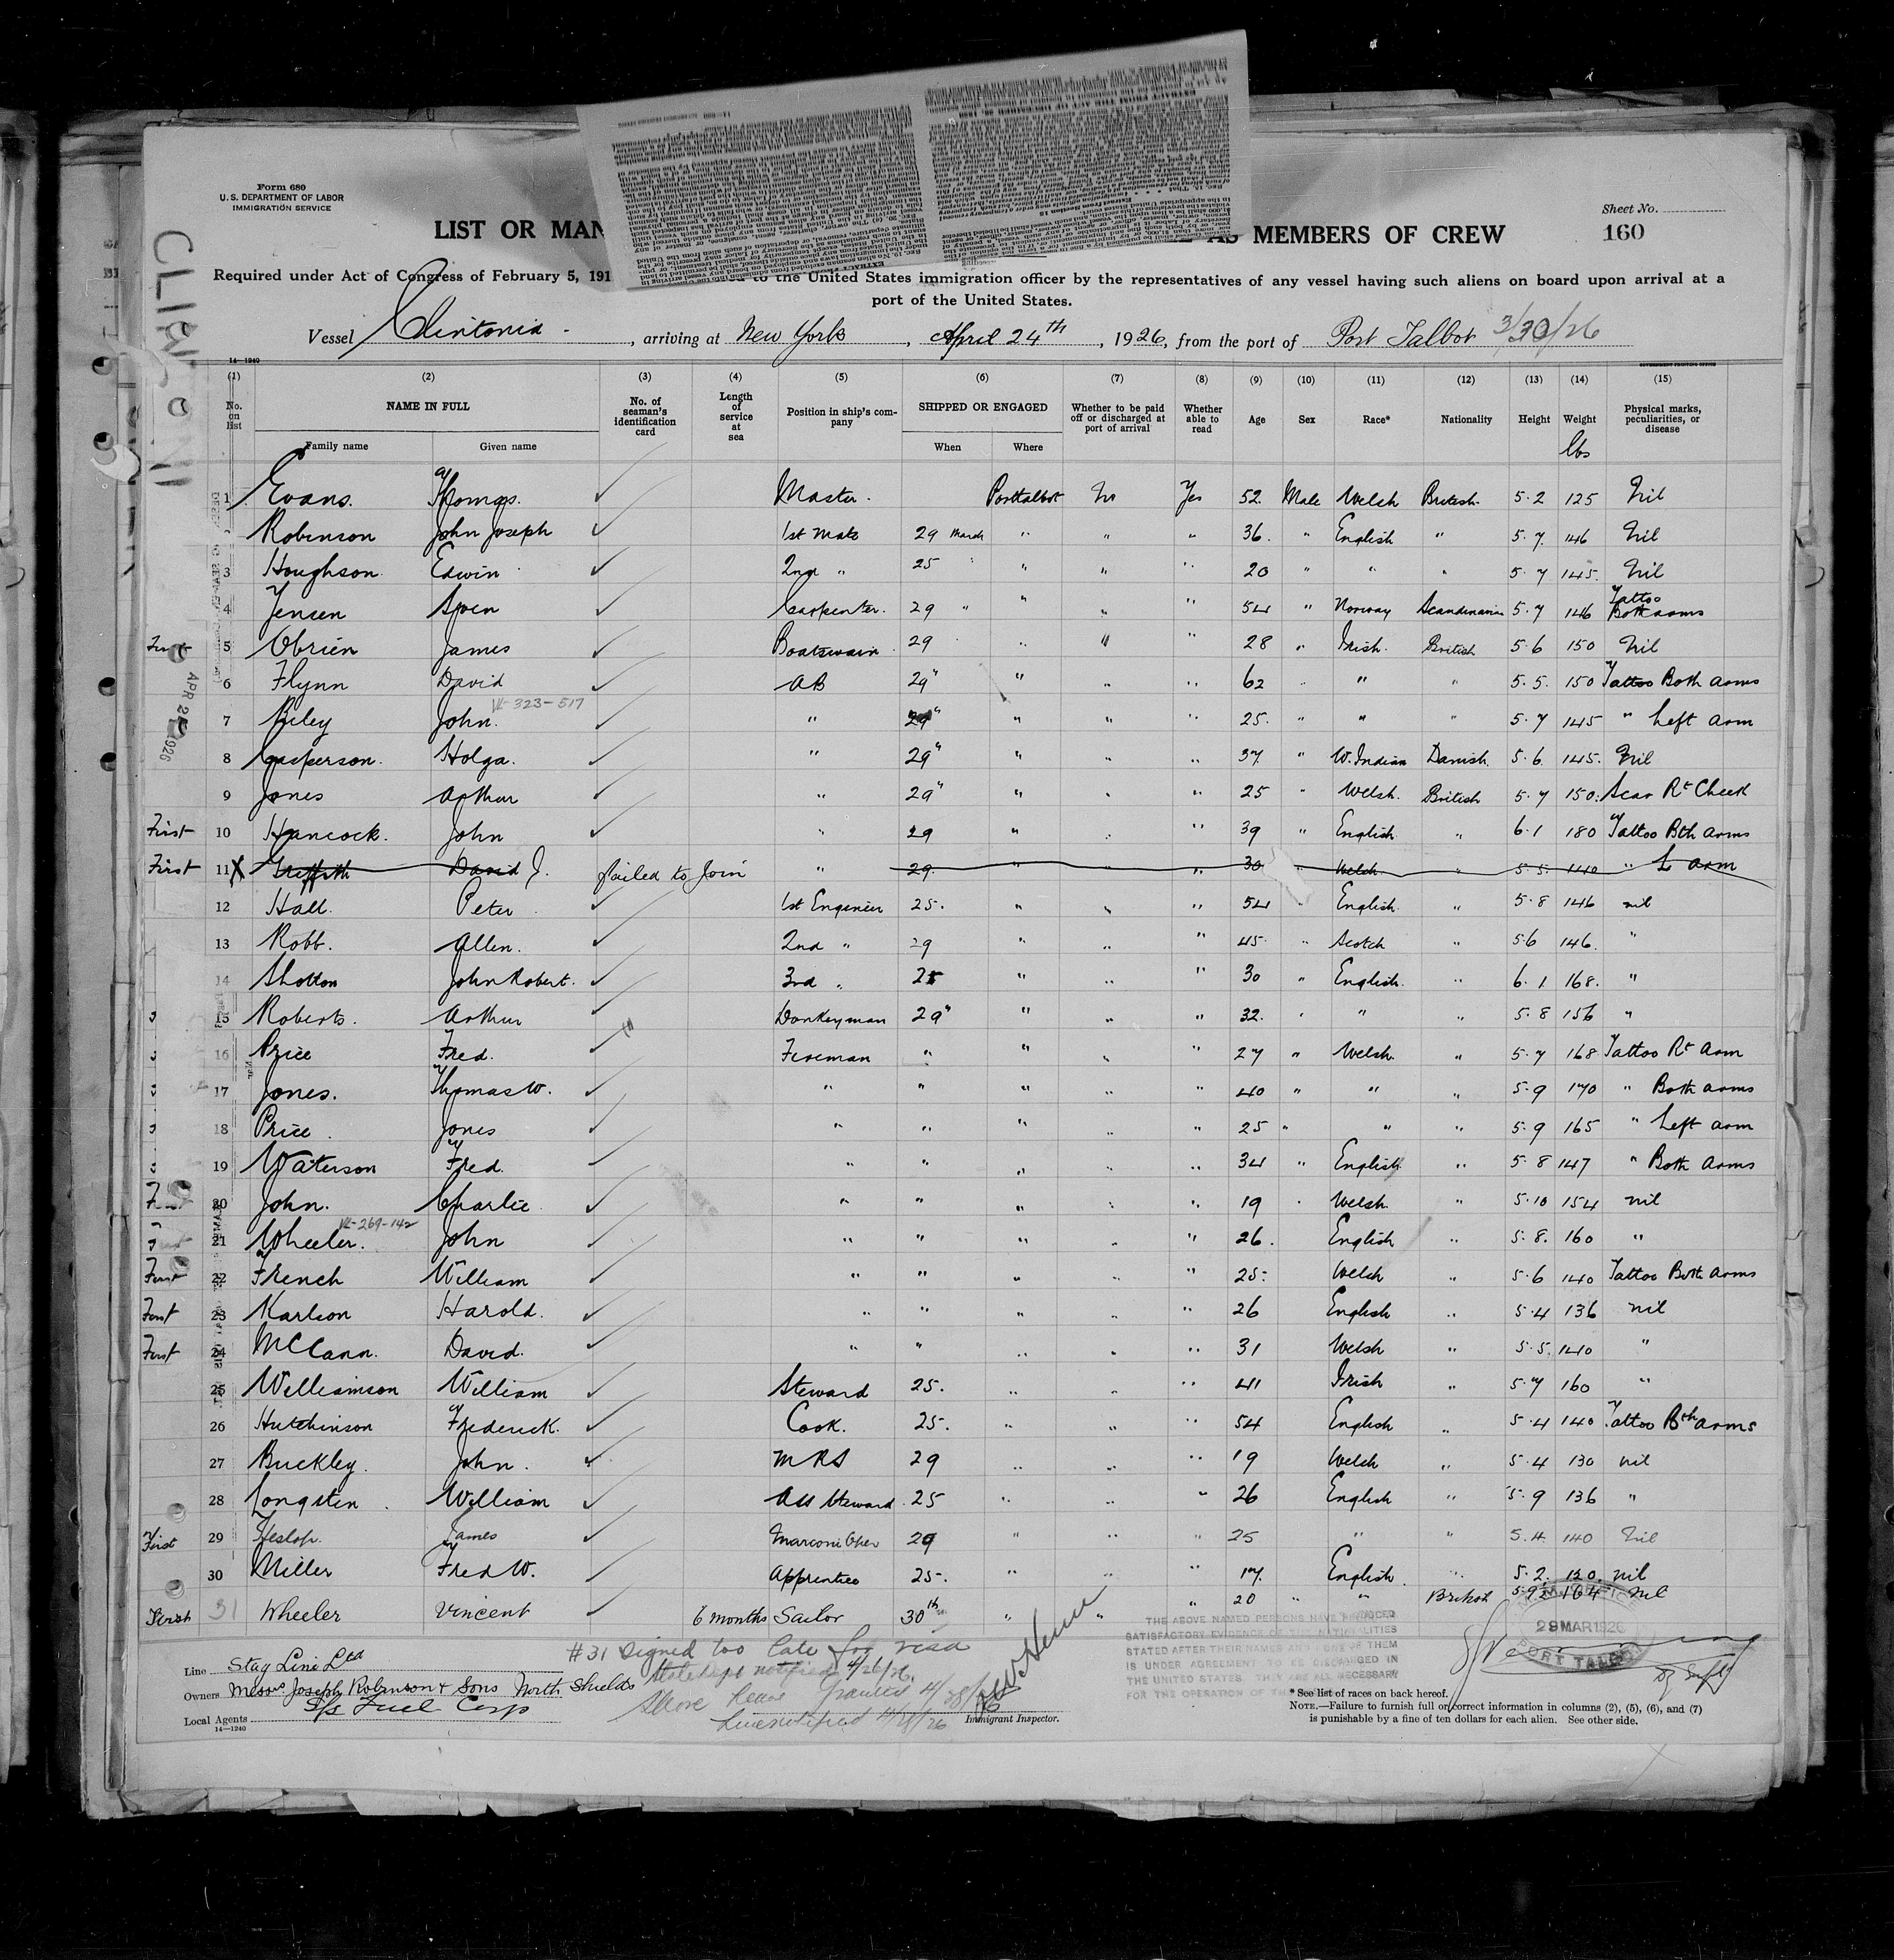 Form 680
U. S. DEPARTMENT OF LABOR
IMMIGRATION SERVICE
Sheet No.
160
LIST OR MAN AS MEMBERS OF CREW
Required under Act of Congress of February 5, 191 to the United States immigration officer by the representatives of any vessel having such aliens on board upon arrival at a
port of the United States.
Vessel Clintonia - , arriving at New York , April 24th , 1926, from the port of Port Talbot 3/30/26
14—1240
GOVERNMENT PRINTING OFFICE
(1) (2) (3) (4) (5) (6) (7) (8) (9) (10) (11) (12) (13) (14) (15)
No. on list NAME IN FULL No. of seaman's identification card Length of service at sea Position in ship's company SHIPPED OR ENGAGED Whether to be paid off or discharged at port of arrival Whether able to read Age Sex Race* Nationality Height Weight Physical marks, peculiarities, or disease
Family name Given name When Where lbs
1 Evans. Thomas. Master. Port talbot No Yes 52 Male Welsh British 5.2 125 Nil
Robinson John Joseph 1st Mate 29 March " " " 36. " English " 5.7 146 Nil
3 Houghson Edwin 2nd " 25 " " " " 20 " " " 5.7 145. Nil
4 Jensen Sven Carpenter. 29 " " " " 54 " Norway Scandinavian 5.7 146 Tattoo Both arms
First 5 Obrien James Boatswain 29 " " " 28 " Irish. British 5.6 150 Nil
6 Flynn David AB 29 " " " " 62 " " " 5.5. 150 Tattoo Both arms
VL-323-517
7 Riley John. " 29 " " " " 25. " " " 5.7 145 " Left arm
8 Casperson. Holga. " 29 " " " " 37 " W. Indian Danish. 5.6. 145. Nil
9 Jones Arthur " 29 " " " " 25 " Welsh. British 5.7 150. Scar Rt Cheek
First 10 Hancock. John " 29 " " " 39 " English " 6.1 180 Tattoo Bth arms
First 11 X Griffith David J. failed to join " 29. " " " 30 " Welsh. " 5.5. 140 " L arm
12 Hall. Peter 1st Engineer 25. " " " 54 " English. " 5.8 146 nil
13 Robb. Allen. 2nd " 29 " " " 45. " Scotch " 5.6 146. "
14 Shotton John Robert. 3rd " 25 " " " 30 " English. " 6.1 168. "
15 Roberts. Arthur Donkeyman 29 " " " " 32. " " " 5.8 156 "
16 Price Fred. Fireman " " " " 27 " Welsh. " 5.7 168 Tattoo Rt arm
17 Jones. Thomas W. " " " " " 40 " " " 5.9 170 " Both arms
18 Price. Jones " " " " " 25 " " " 5.9 165 " Left arm
19 Waterson Fred. " " " " " 34 " English " 5.8 147 " Both arms
20 John. Charlie " " " " " 19 " Welsh. " 5.10 154 nil
VL-269-142
21 Wheeler. John " " " " " 26. English " 5.8. 160 "
First 22 French William " " " " " 25. Welsh " 5.6 140 Tattoo Both arms
First 23 Karlson Harold. " " " " " 26 English " 5.4 136 nil
First 24 McCann. David. " " " " " 31 Welsh " 5.5. 140 "
25 Williamson William Steward 25. " " " 41 Irish " 5.7 160 "
26 Hutchinson Frederick. Cook. 25. " " " 54 English " 5.4 140 Tattoo Bth arms
27 Buckley. John. MRS 29 " " " 19 Welsh " 5.4 130 nil
28 Longsten William Ass Steward 25 " " " 26 English " 5.9 136 "
First 29 Heslop. James Marconi Oper 29 " " " 25 " " 5.4. 140 Nil
30 Miller Fred W. Apprentice 25. " 17. English. " 5.2. 120. nil
First 31 Wheeler Vincent 6 months Sailor 30th " " " 20 " " British 5.9½ 164 Nil
#31 Signed too late for visa
State Dept notified 4/26/26.
Shore leave granted 4/28/26
Line notified
Line Stag Line Ltd
Owners Messrs Joseph Robinson & Sons North Shields
Local Agents S/s Fuel Corp
14—1240
Immigrant Inspector.
THE ABOVE NAMED PERSONS HAVE PRODUCED
SATISFACTORY EVIDENCE OF THE NATIONALITIES
STATED AFTER THEIR NAMES AND NONE OF THEM
IS UNDER AGREEMENT TO BE DISCHARGED IN
THE UNITED STATES. THEY ARE ALL NECESSARY
FOR THE OPERATION OF THE
29 MAR 1926
PORT TALBOT
* See list of races on back hereof.
NOTE.—Failure to furnish full or correct information in columns (2), (5), (6), and (7)
is punishable by a fine of ten dollars for each alien. See other side.
CLINTONI
APR 26 1926